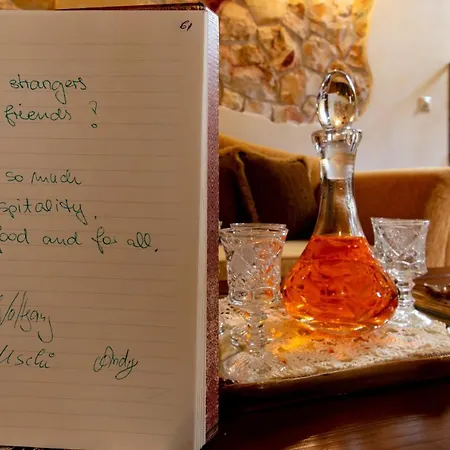 61
strangers
friends ?
so much
spitality,
food and for all.
Wolfgang
Uschi Andy